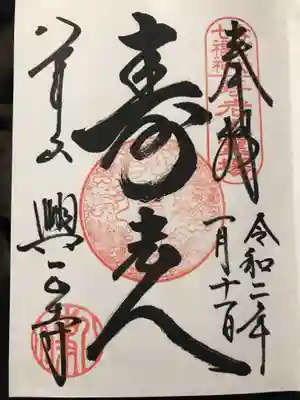 奉拝
七福神
令和二年
一月十一日
寿老人
八事山
興正寺